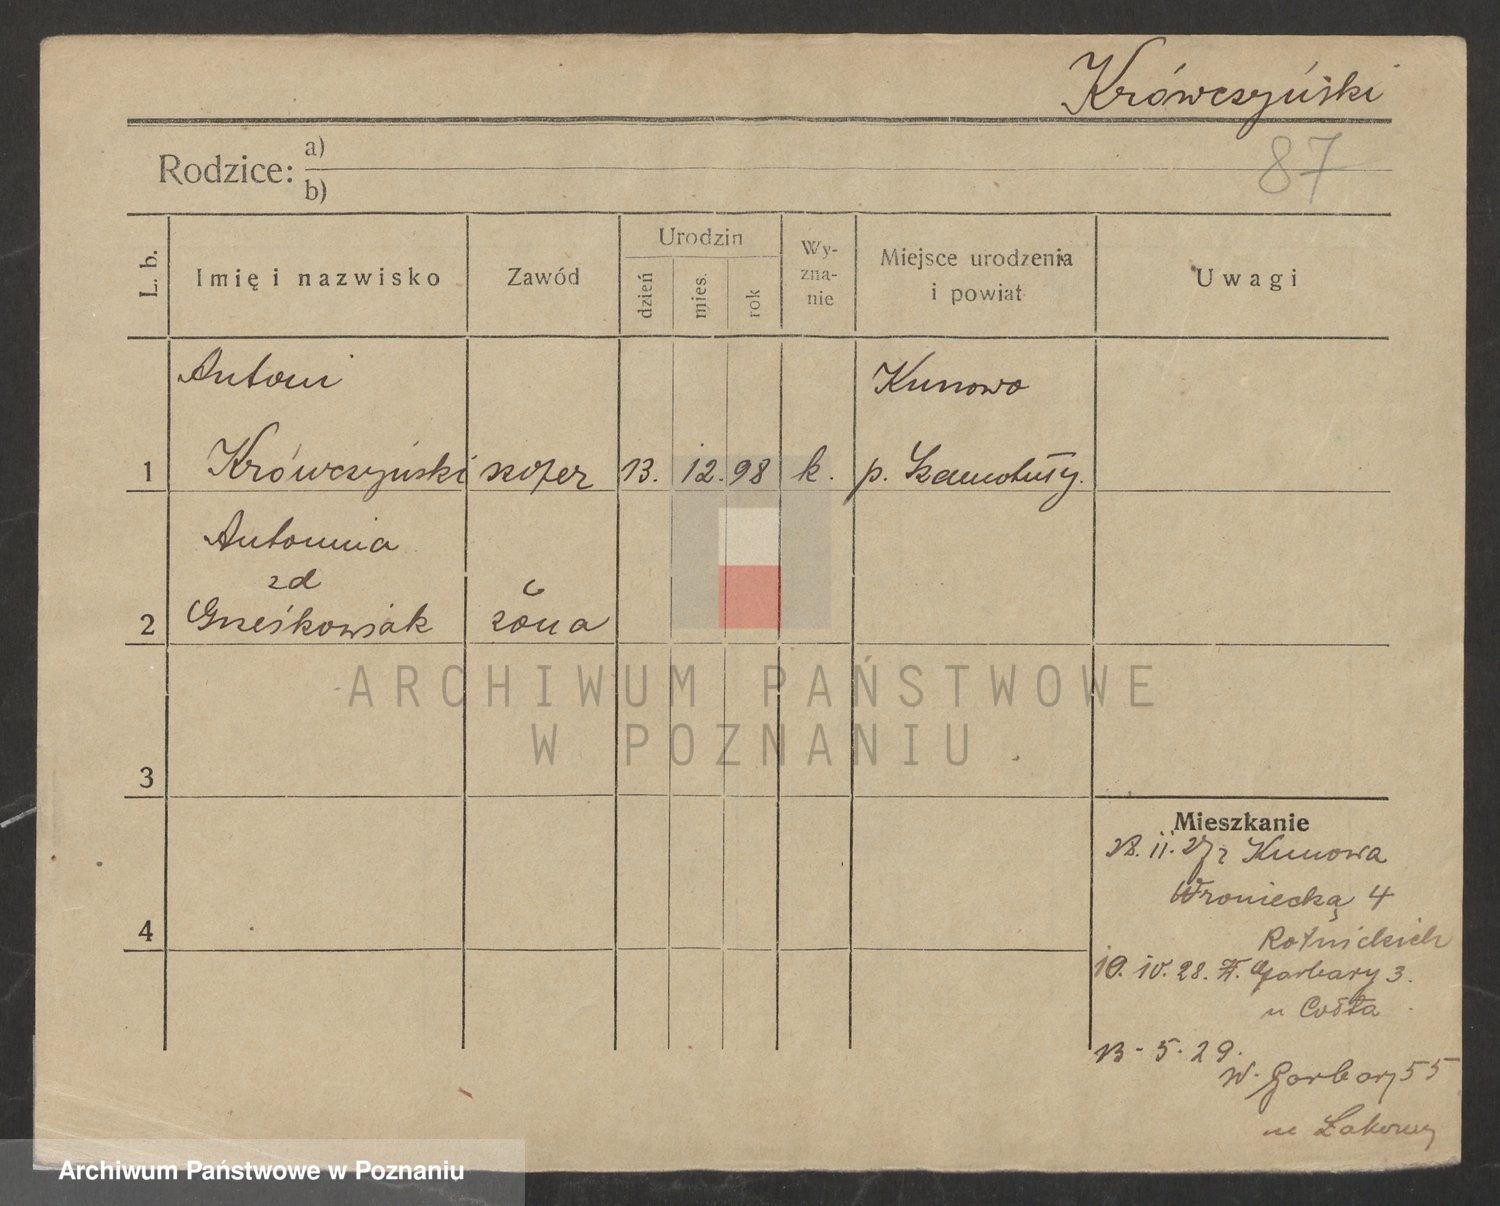 Krówczyński
87
Rodzice: a)
b)
L. b. Imię i nazwisko Zawód Urodzin dzień mies. rok Wy-zna-nie Miejsce urodzenia i powiat Uwagi
Antoni Kunowo
1 Krówczyński szofer 13. 12. 98 k. p. Szamotuły.
Antonina
zd
2 Grześkowiak żona
3
4
Mieszkanie
28. 11. 27 z Kunowa
Wroniecka 4
10. 10. 28. Garbary 3.
u
13 - 5. 29.
W. Garbary 55
u
ARCHIWUM PAŃSTWOWE
W POZNANIU
Archiwum Państwowe w Poznaniu